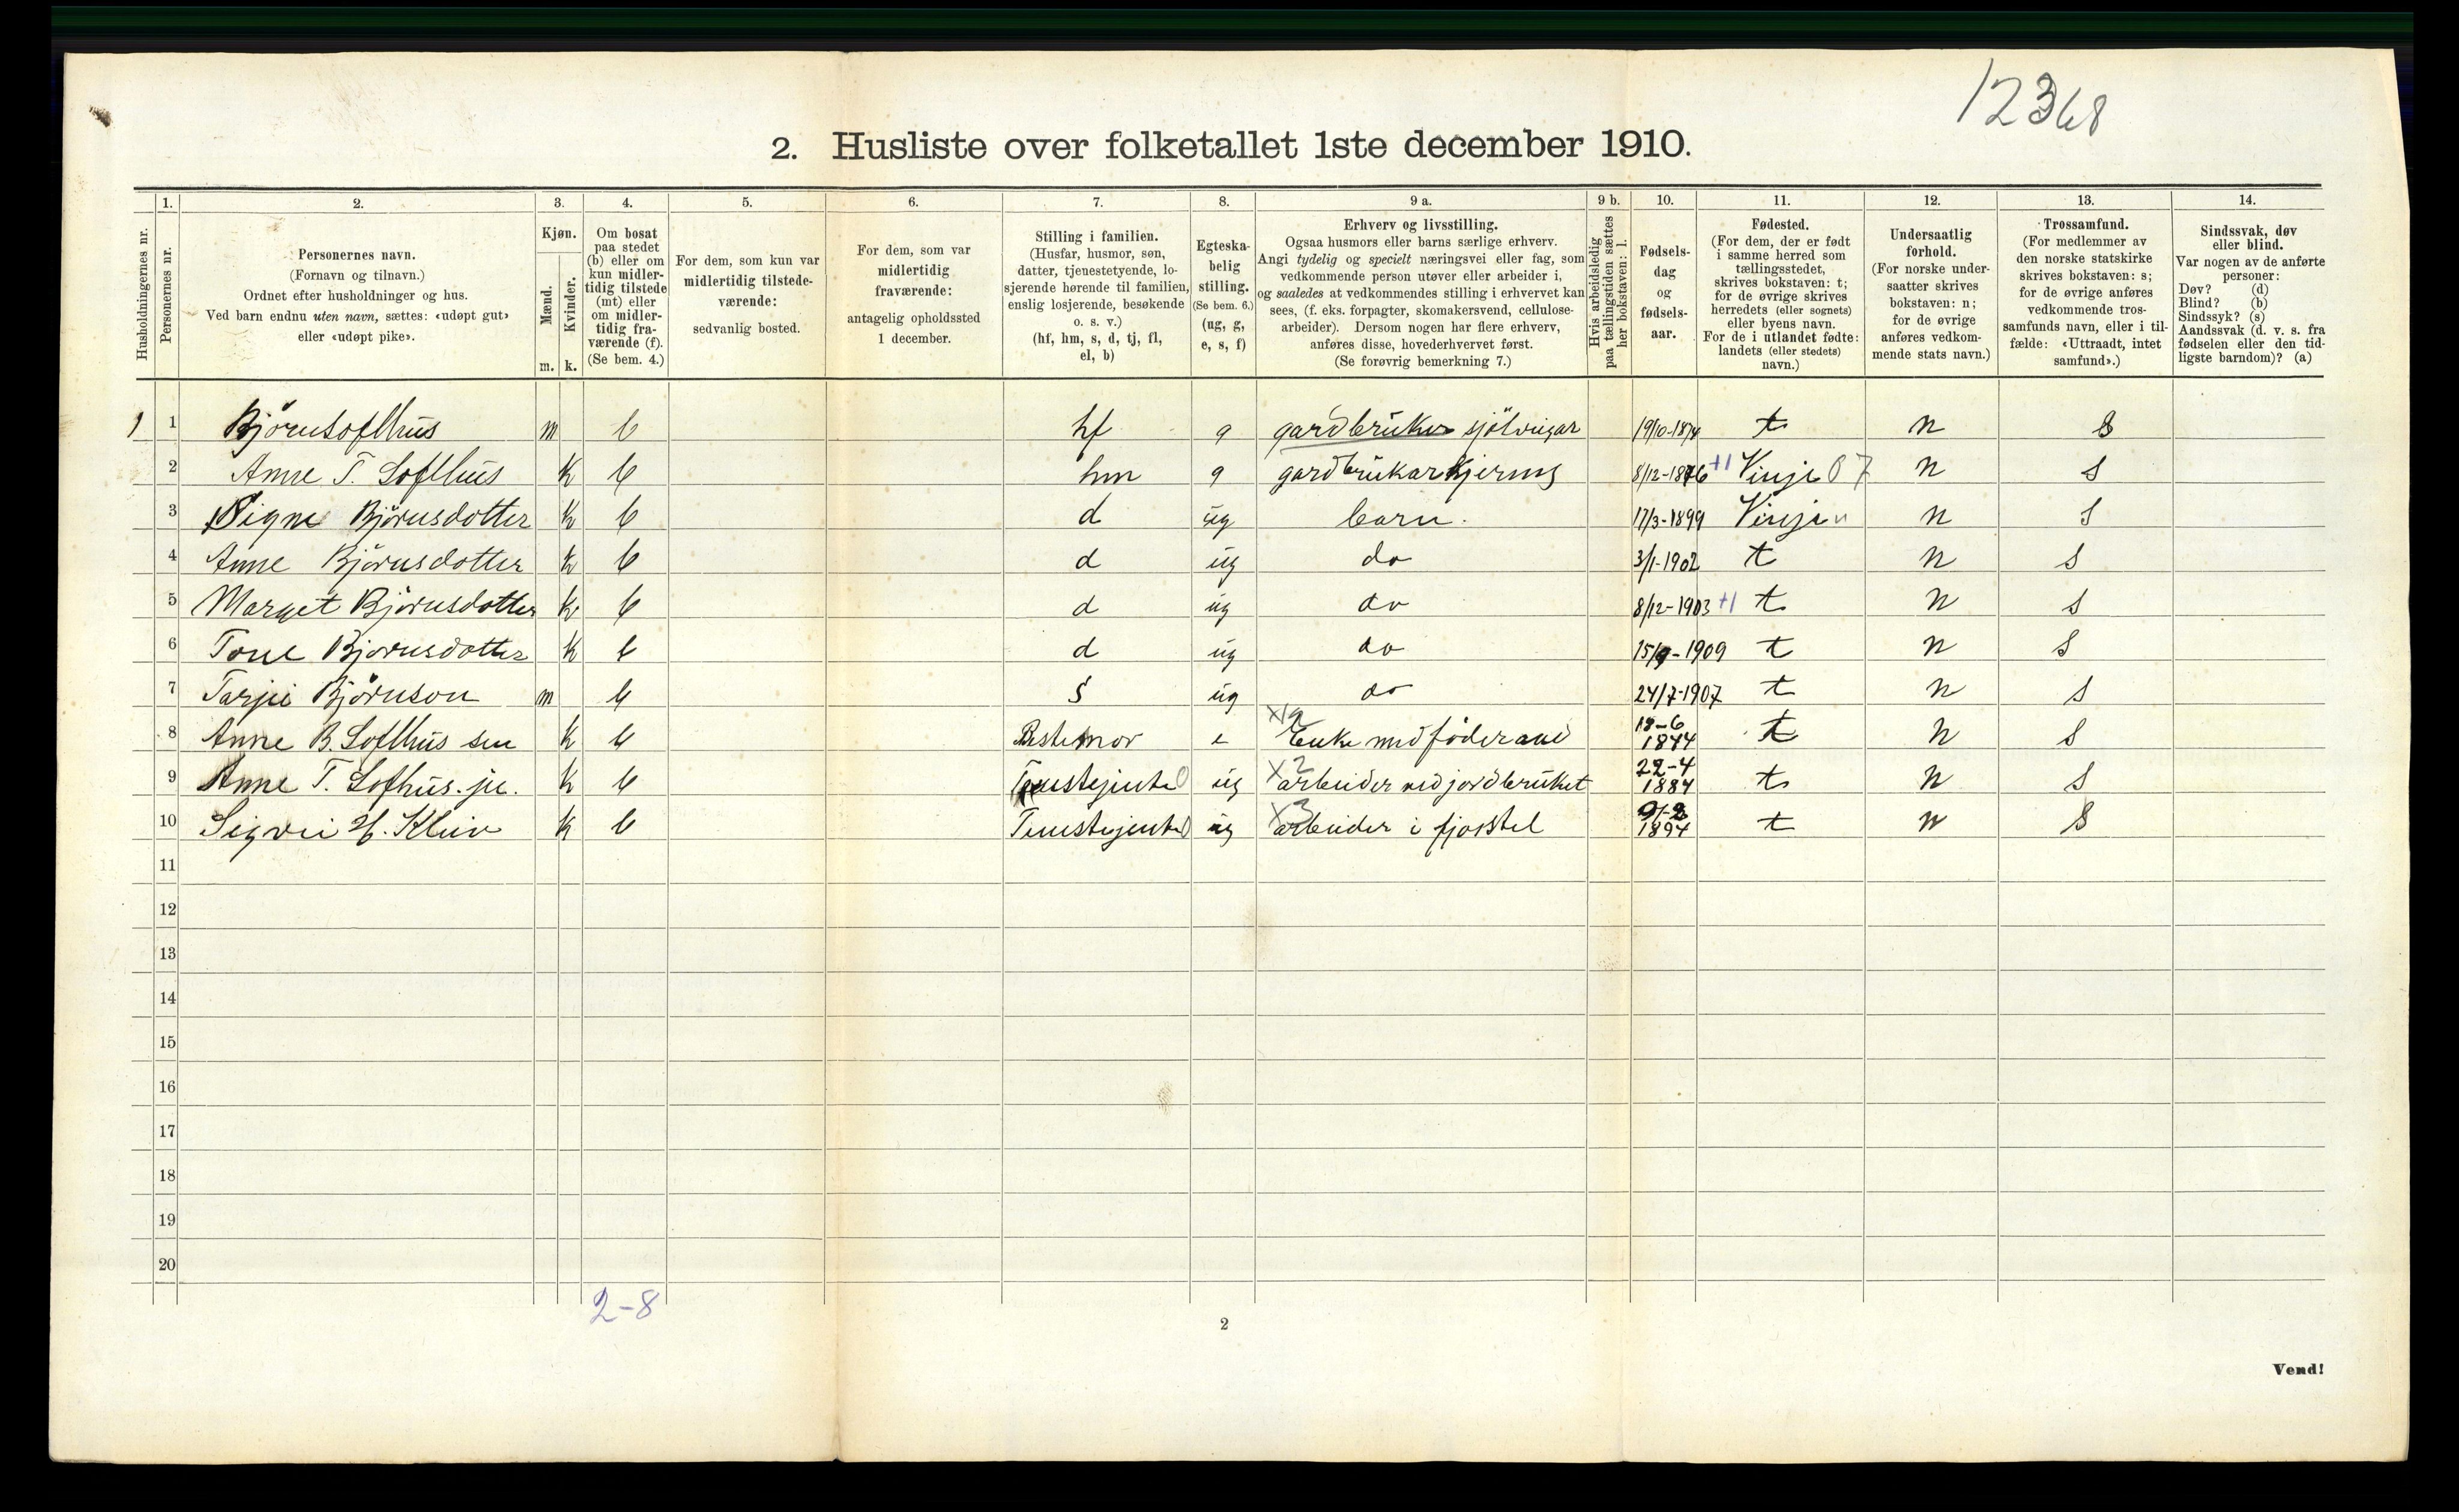 12368
2. Husliste over folketallet 1ste december 1910.
Husholdningernes nr.
1.
Personernes nr.
2.
Personernes navn.
(Fornavn og tilnavn.)
Ordnet efter husholdninger og hus.
Ved barn endnu uten navn, sættes: «udøpt gut»
eller «udøpt pike».
3.
Kjøn.
Mænd.
Kvinder.
m. k.
4.
Om bosat
paa stedet
(b) eller om
kun midler-
tidig tilstede
(mt) eller
om midler-
tidig fra-
værende (f).
(Se bem. 4.)
5.
For dem, som kun var
midlertidig tilstede-
værende:
sedvanlig bosted.
6.
For dem, som var
midlertidig
fraværende:
antagelig opholdssted
1 december.
7.
Stilling i familien.
(Husfar, husmor, søn,
datter, tjenestetyende, lo-
sjerende hørende til familien,
enslig losjerende, besøkende
o. s. v.)
(hf, hm, s, d, tj, fl,
el, b)
8.
Egteska-
belig
stilling.
(Se bem. 6.)
(ug, g,
e, s, f)
9 a.
Erhverv og livsstilling.
Ogsaa husmors eller barns særlige erhverv.
Angi tydelig og specielt næringsvei eller fag, som
vedkommende person utøver eller arbeider i,
og saaledes at vedkommendes stilling i erhvervet kan
sees, (f. eks. forpagter, skomakersvend, cellulose-
arbeider). Dersom nogen har flere erhverv,
anføres disse, hovederhvervet først.
(Se forøvrig bemerkning 7.)
9 b.
Hvis arbeidsledig
paa tællingstiden sættes
her bokstaven: l.
10.
Fødsels-
dag
og
fødsels-
aar.
11.
Fødested.
(For dem, der er født
i samme herred som
tællingsstedet,
skrives bokstaven: t;
for de øvrige skrives
herredets (eller sognets)
eller byens navn.
For de i utlandet fødte:
landets (eller stedets)
navn.)
12.
Undersaatlig
forhold.
(For norske under-
saatter skrives
bokstaven: n;
for de øvrige
anføres vedkom-
mende stats navn.)
13.
Trossamfund.
(For medlemmer av
den norske statskirke
skrives bokstaven: s;
for de øvrige anføres
vedkommende tros-
samfunds navn, eller i til-
fælde: «Uttraadt, intet
samfund».)
14.
Sindssvak, døv
eller blind.
Var nogen av de anførte
personer:
Døv? (d)
Blind? (b)
Sindssyk? (s)
Aandssvak (d. v. s. fra
fødselen eller den tid-
ligste barndom)? (a)
1 1 Bjørn Lofthus m b hf g gardbruker sjölveigar 19/10-1874 t n s
2 Anne T. Lofthus k b hm g gardbrukarkjerring 8/12-1876 +1 Vinje 07 n s
3 Signe Björnsdotter k b d ug barn. 17/3-1899 Vinje " n s
4 Anne Björnsdotter k b d ug do 3/1-1902 t n s
5 Marget Björnsdotter k b d ug do 8/12-1903 +1 t n s
6 Tone Björnsdotter k b d ug do 15/9-1909 t n s
7 Tarjei Björnson m b s ug do 24/7-1907 t n s
8 Anne B. Lofthus sen k b Bestemor e Enke med föderaad 18-6 1844 t n s
9 Anne T. Lofhus. ju. k b Tenestejente 0 ug x2 arbeider ved jordbruket 22-4 1884 t n s
10 Sigrei H. Kleiv k b Tenestejente 0 ug x3 arbeider i fjosstel 1894 t n s
11
12
13
14
15
16
17
18
19
20
2-8
2
Vend!